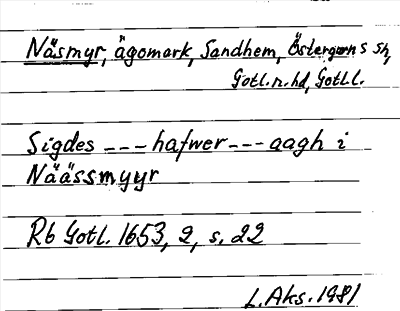 Näsmyr, ägomark, Sandhem, Östergarns sn,
Gotl.n.hd, Gotl.l.
Sigdes --- hafwer --- aagh i
Näässmyyr
Rb Gotl. 1653, 2, s. 22
L. Aks. 1981